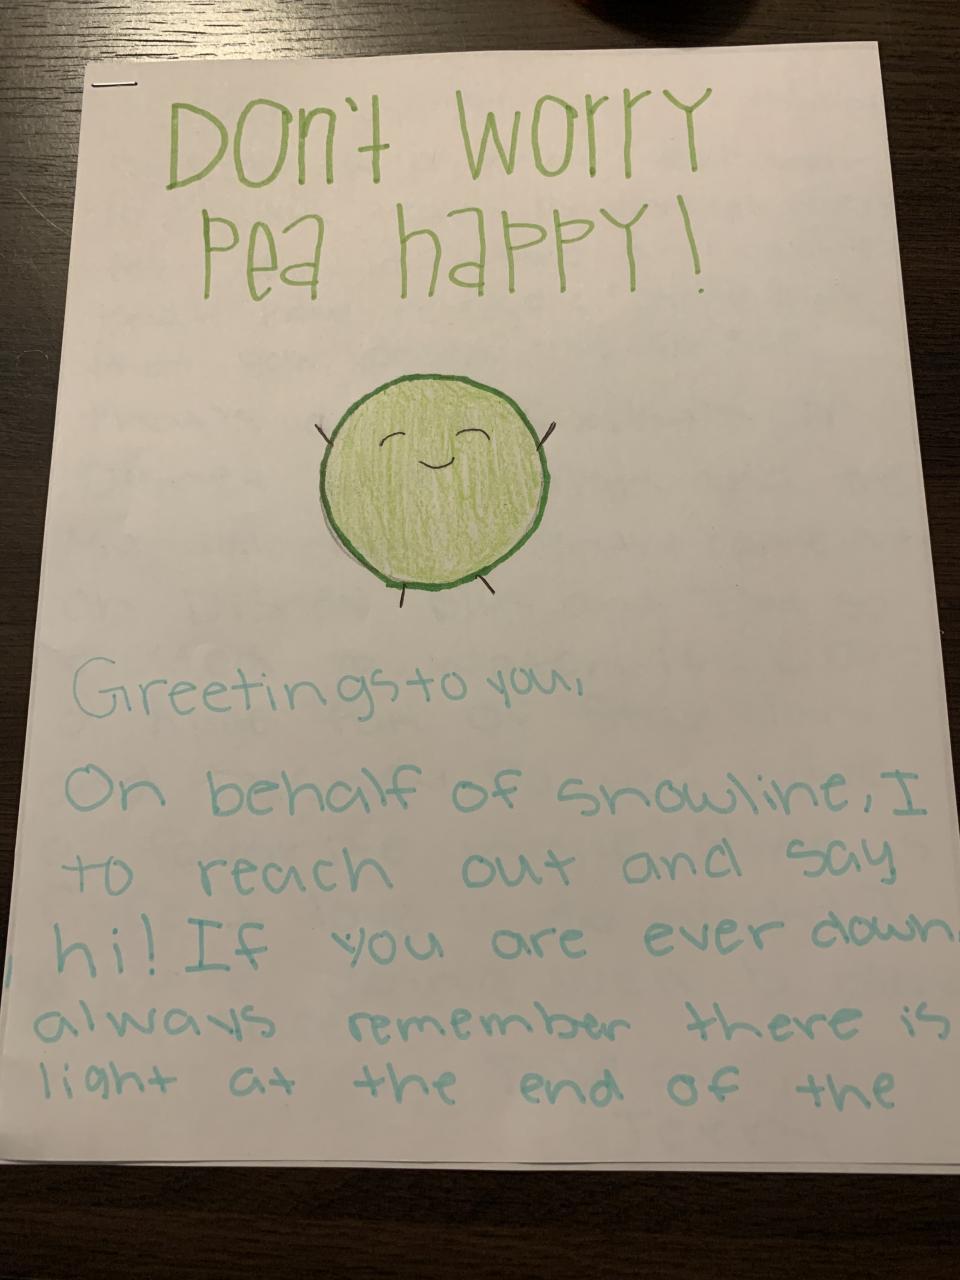 Don't worry
Pea happy!
Greetings to you,
On behalf of snowline, I
to reach out and say
hi! If you are ever down,
always remember there is
light at the end of the